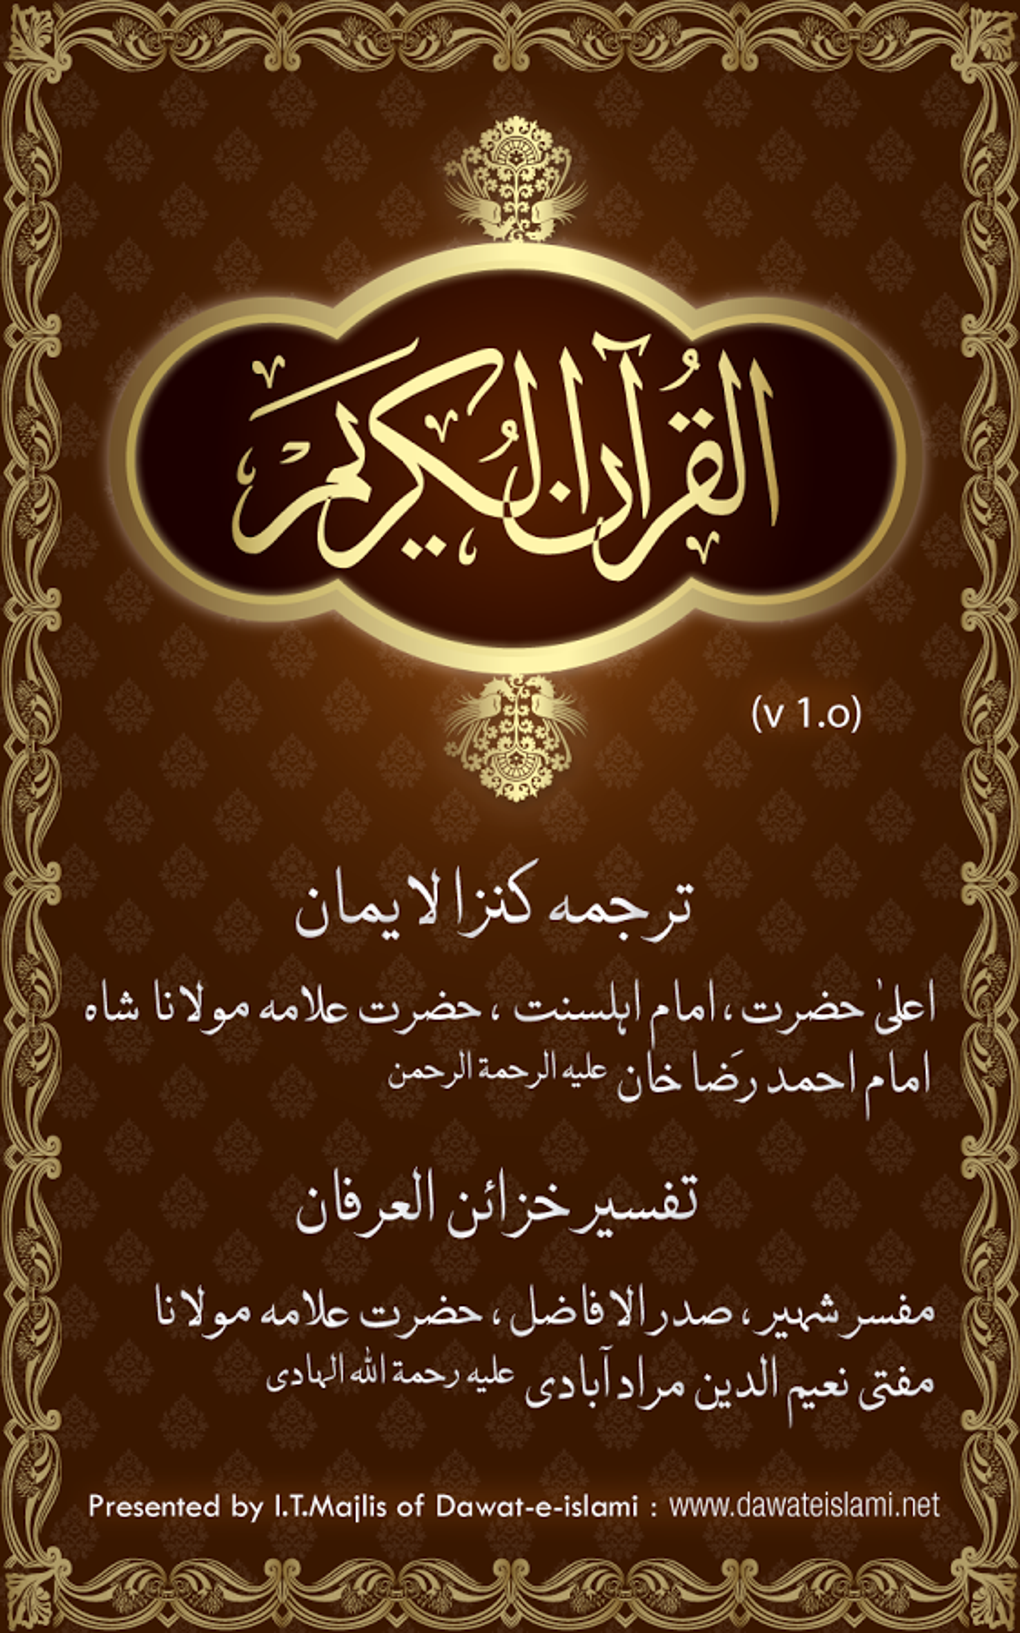 القرآن الكريم
(v 1.o)
ترجمه كنز الايمان
اعلیٰ حضرت ، امام اہلسنت ، حضرت علامه مولانا شاه
امام احمد رَضا خان عليه الرحمة الرحمن
تفسير خزائن العرفان
مفسر شہیر ، صدر الافاضل ، حضرت علامه مولانا
مفتی نعيم الدين مراد آبادی عليه رحمة الله الہادی
Presented by I.T.Majlis of Dawat-e-islami : www.dawateislami.net